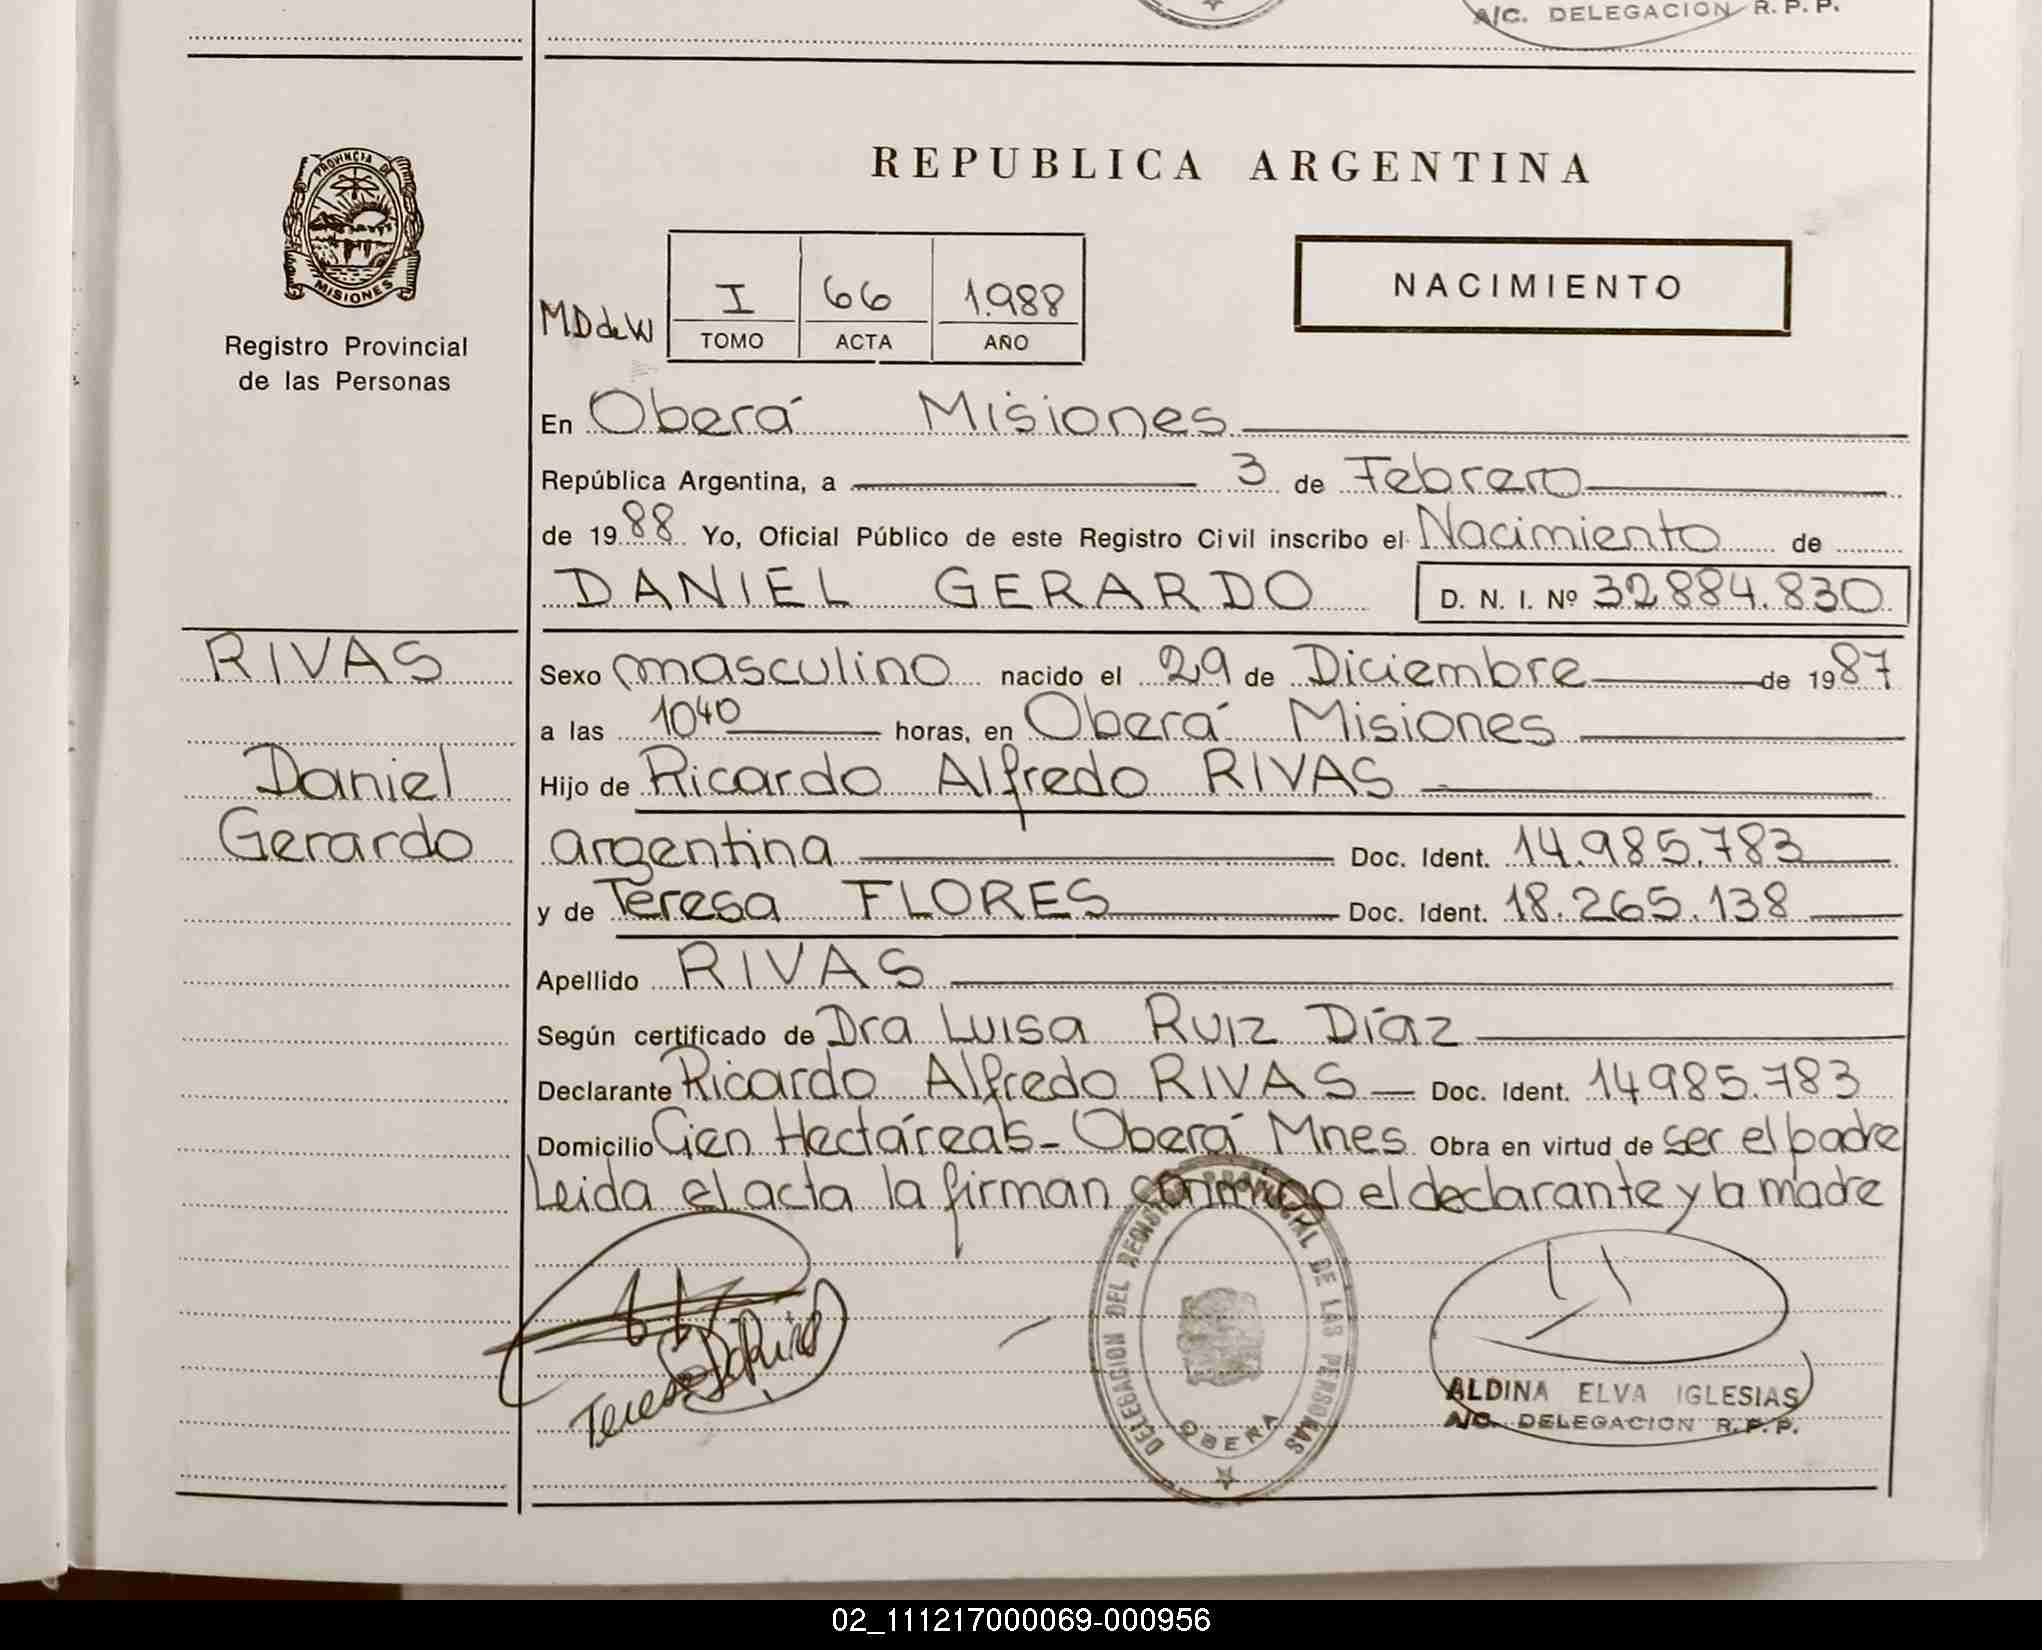 A/C. DELEGACION R. P. P.
PROVINCIA DE
MISIONES
Registro Provincial
de las Personas
REPUBLICA ARGENTINA
NACIMIENTO
MD de W
I 66 1.988
TOMO ACTA AÑO
En Oberá Misiones
República Argentina, a 3 de Febrero
de 1988 Yo, Oficial Público de este Registro Civil inscribo el Nacimiento de
DANIEL GERARDO D. N. I. Nº 32.884.830
RIVAS
Daniel
Gerardo
Sexo masculino nacido el 29 de Diciembre de 1987
a las 10⁴⁰ horas, en Oberá Misiones
Hijo de Ricardo Alfredo RIVAS
argentina Doc. Ident. 14.985.783
y de Teresa FLORES Doc. Ident. 18.265.138
Apellido RIVAS
Según certificado de Dra Luisa Ruiz Díaz
Declarante Ricardo Alfredo RIVAS Doc. Ident. 14.985.783
Domicilio Cien Hectáreas - Oberá Mnes Obra en virtud de ser el padre
Leida el acta la firman conmigo el declarante y la madre
Teresa
DELEGACION DEL REGISTRO PROVINCIAL DE LAS PERSONAS
OBERA
ALDINA ELVA IGLESIAS
A/C. DELEGACION R. P. P.
02_111217000069-000956